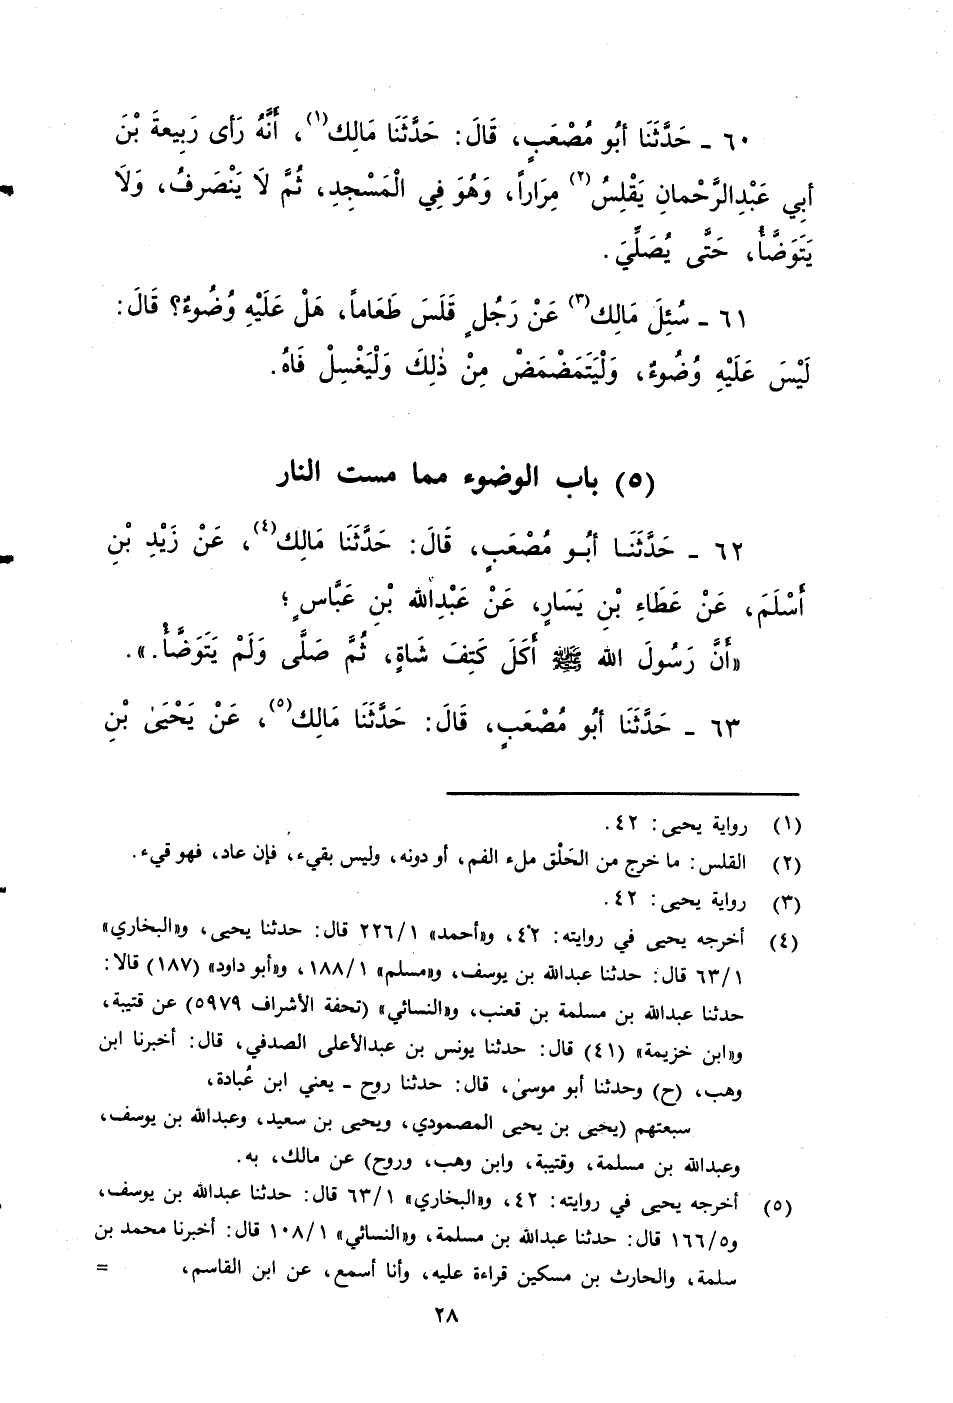 ٦٠ ـ حَدَّثَنَا أبُو مُصْعَبٍ، قَالَ: حَدَّثَنَا مَالِك(١)، أَنَّهُ رَأى رَبِيعةَ بْنَ
أبِي عَبْدِالرَّحْمانِ يَقْلِسُ(٢) مِرَاراً، وَهُوَ فِي الْمَسْجِدِ، ثُمَّ لَا يَنْصَرفُ، وَلَا
يَتَوَضَّأُ، حَتَّى يُصَلِّيَ.
٦١ ـ سُئِلَ مَالِك(٣) عَنْ رَجُلٍ قَلَسَ طَعَاماً، هَلْ عَلَيْهِ وُضُوءٌ؟ قَالَ:
لَيْسَ عَلَيْهِ وُضُوءٌ، وَلْيَتَمَضْمَضْ مِنْ ذٰلِكَ وَلْيَغْسِلْ فَاهُ.
(٥) باب الوضوء مما مست النار
٦٢ ـ حَدَّثَنَا أبُو مُصْعَبٍ، قَالَ: حَدَّثَنَا مَالِك(٤)، عَنْ زَيْدِ بْنِ
أَسْلَمَ، عَنْ عَطَاءِ بْنِ يَسَارٍ، عَنْ عَبْدِالله بْنِ عَبَّاسٍ؛
«أَنَّ رَسُولَ الله ﷺ أَكَلَ كَتِفَ شَاةٍ، ثُمَّ صَلَّى وَلَمْ يَتَوَضَّأْ.».
٦٣ ـ حَدَّثَنَا أبُو مُصْعَبٍ، قَالَ: حَدَّثَنَا مَالِك(٥)، عَنْ يَحْيَىٰ بْنِ
(١) رواية يحيى: ٤٢.
(٢) القلس: ما خرج من الحَلْق ملء الفم، أو دونه، وليس بقيء، فإن عاد، فهو قيء.
(٣) رواية يحيى: ٤٢.
(٤) أخرجه يحيى في روايته: ٤٢، و«أحمد» ٢٢٦/١ قال: حدثنا يحيى، و«البخاري»
٦٣/١ قال: حدثنا عبدالله بن يوسف، و«مسلم» ١٨٨/١، و«أبو داود» (١٨٧) قالا:
حدثنا عبدالله بن مسلمة بن قعنب، و«النسائي» (تحفة الأشراف ٥٩٧٩) عن قتيبة،
و«ابن خزيمة» (٤١) قال: حدثنا يونس بن عبدالأعلى الصدفي، قال: أخبرنا ابن
وهب، (ح) وحدثنا أبو موسىٰ، قال: حدثنا روح ـ يعني ابن عُبادة،
سبعتهم (يحيى بن يحيى المصمودي، ويحيى بن سعيد، وعبدالله بن يوسف،
وعبدالله بن مسلمة، وقتيبة، وابن وهب، وروح) عن مالك، به.
(٥) أخرجه يحيى في روايته: ٤٢، و«البخاري» ٦٣/١ قال: حدثنا عبدالله بن يوسف،
و١٦٦/٥ قال: حدثنا عبدالله بن مسلمة، و«النسائي» ١٠٨/١ قال: أخبرنا محمد بن
سلمة، والحارث بن مسكين قراءة عليه، وأنا أسمع، عن ابن القاسم، =
٢٨